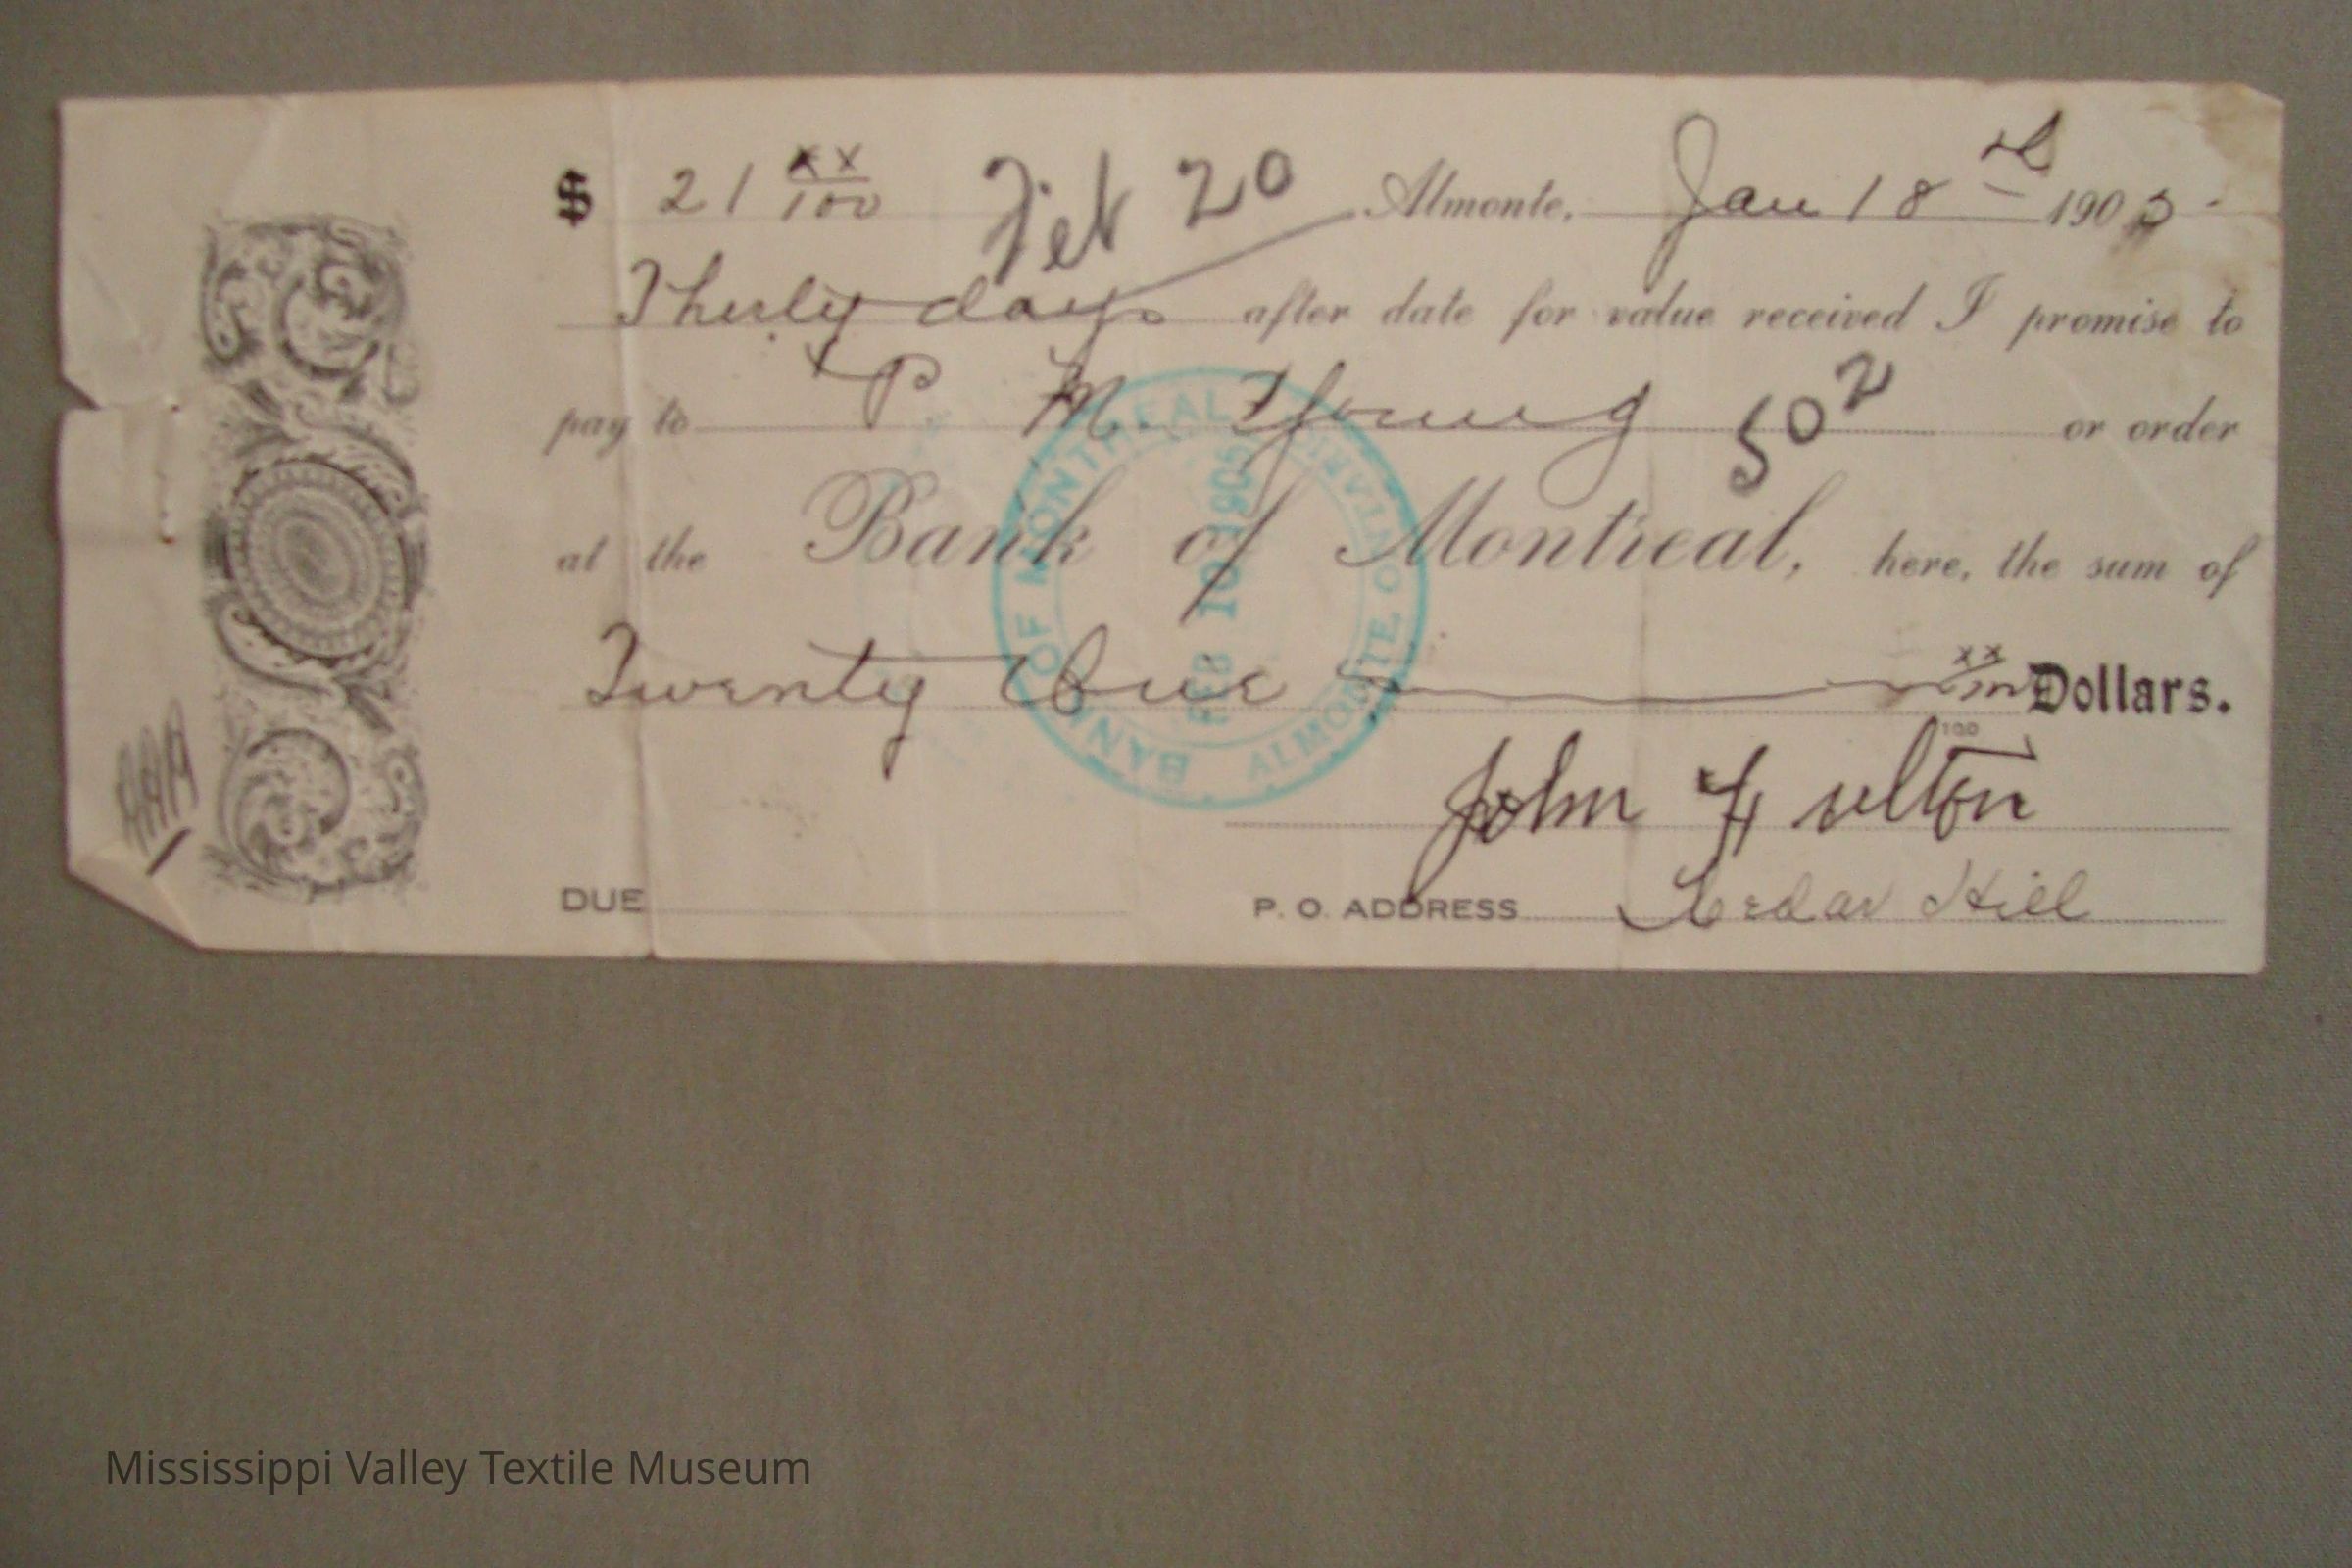 $ 21 xx/100 Feb 20 Almonte, Jan 18 th 1905
Thirty days after date for value received I promise to
pay to P M Young 502 or order
at the Bank of Montreal, here, the sum of
Twenty One xx/100 Dollars.
100
John Fulton
DUE P. O. ADDRESS Cedar Hill
BANK OF MONTREAL
FEB 10 1905
ALMONTE, ONTARIO
Mississippi Valley Textile Museum